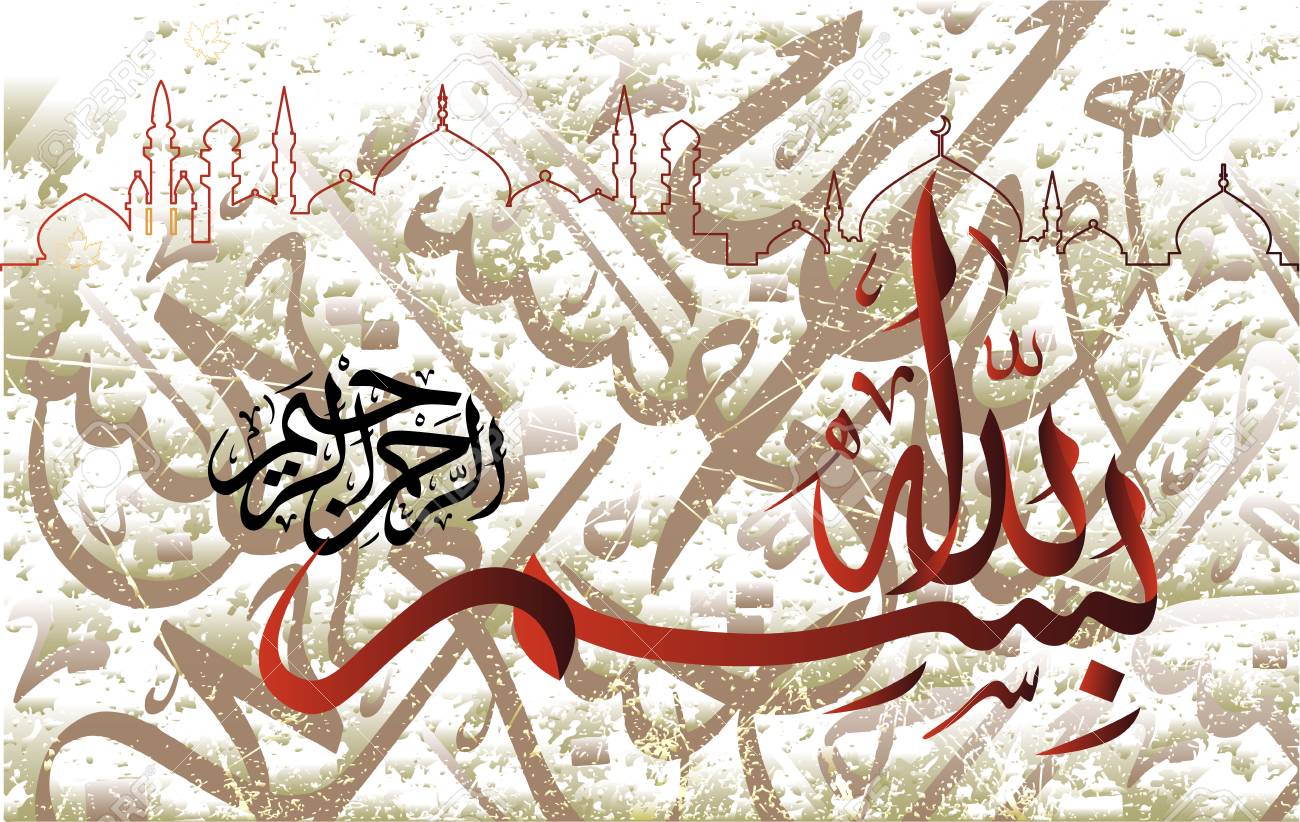 بسم الله
الرحمن الرحيم
123RF